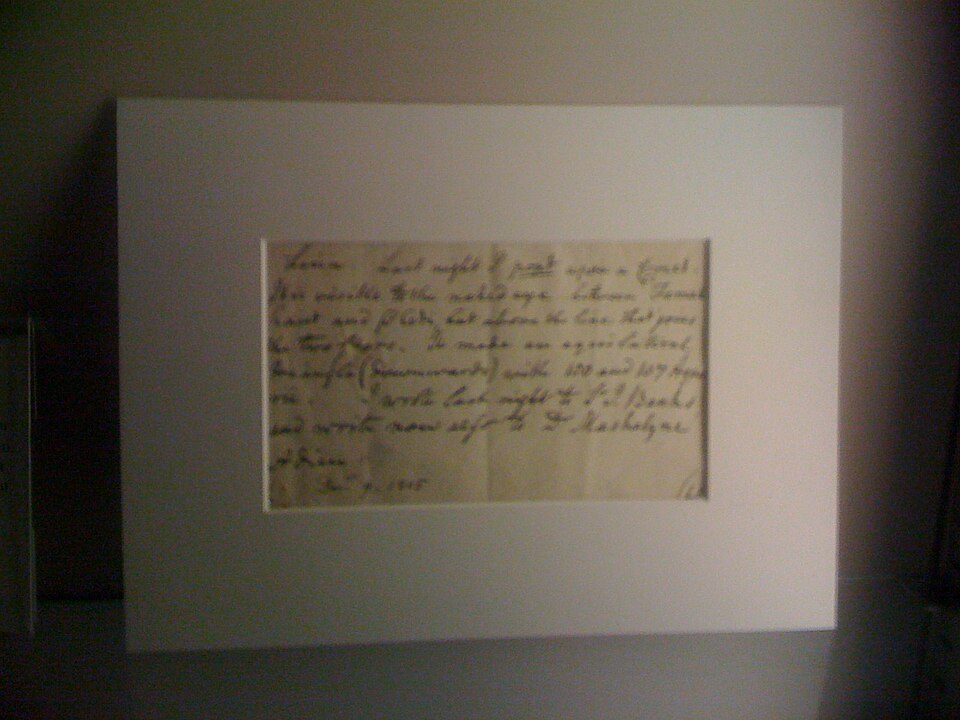 Lina. Last night I post upon a Comet.
It is visible to the naked eye between Fomal
haut and β Ceti, but above the line that joins
the two stars. It made an equilateral
triangle (downwards) with 100 and 107 Aqua
rii. I wrote last night to Sr J. Banks
and write now also to Dr Maskelyne
Adieu
7.